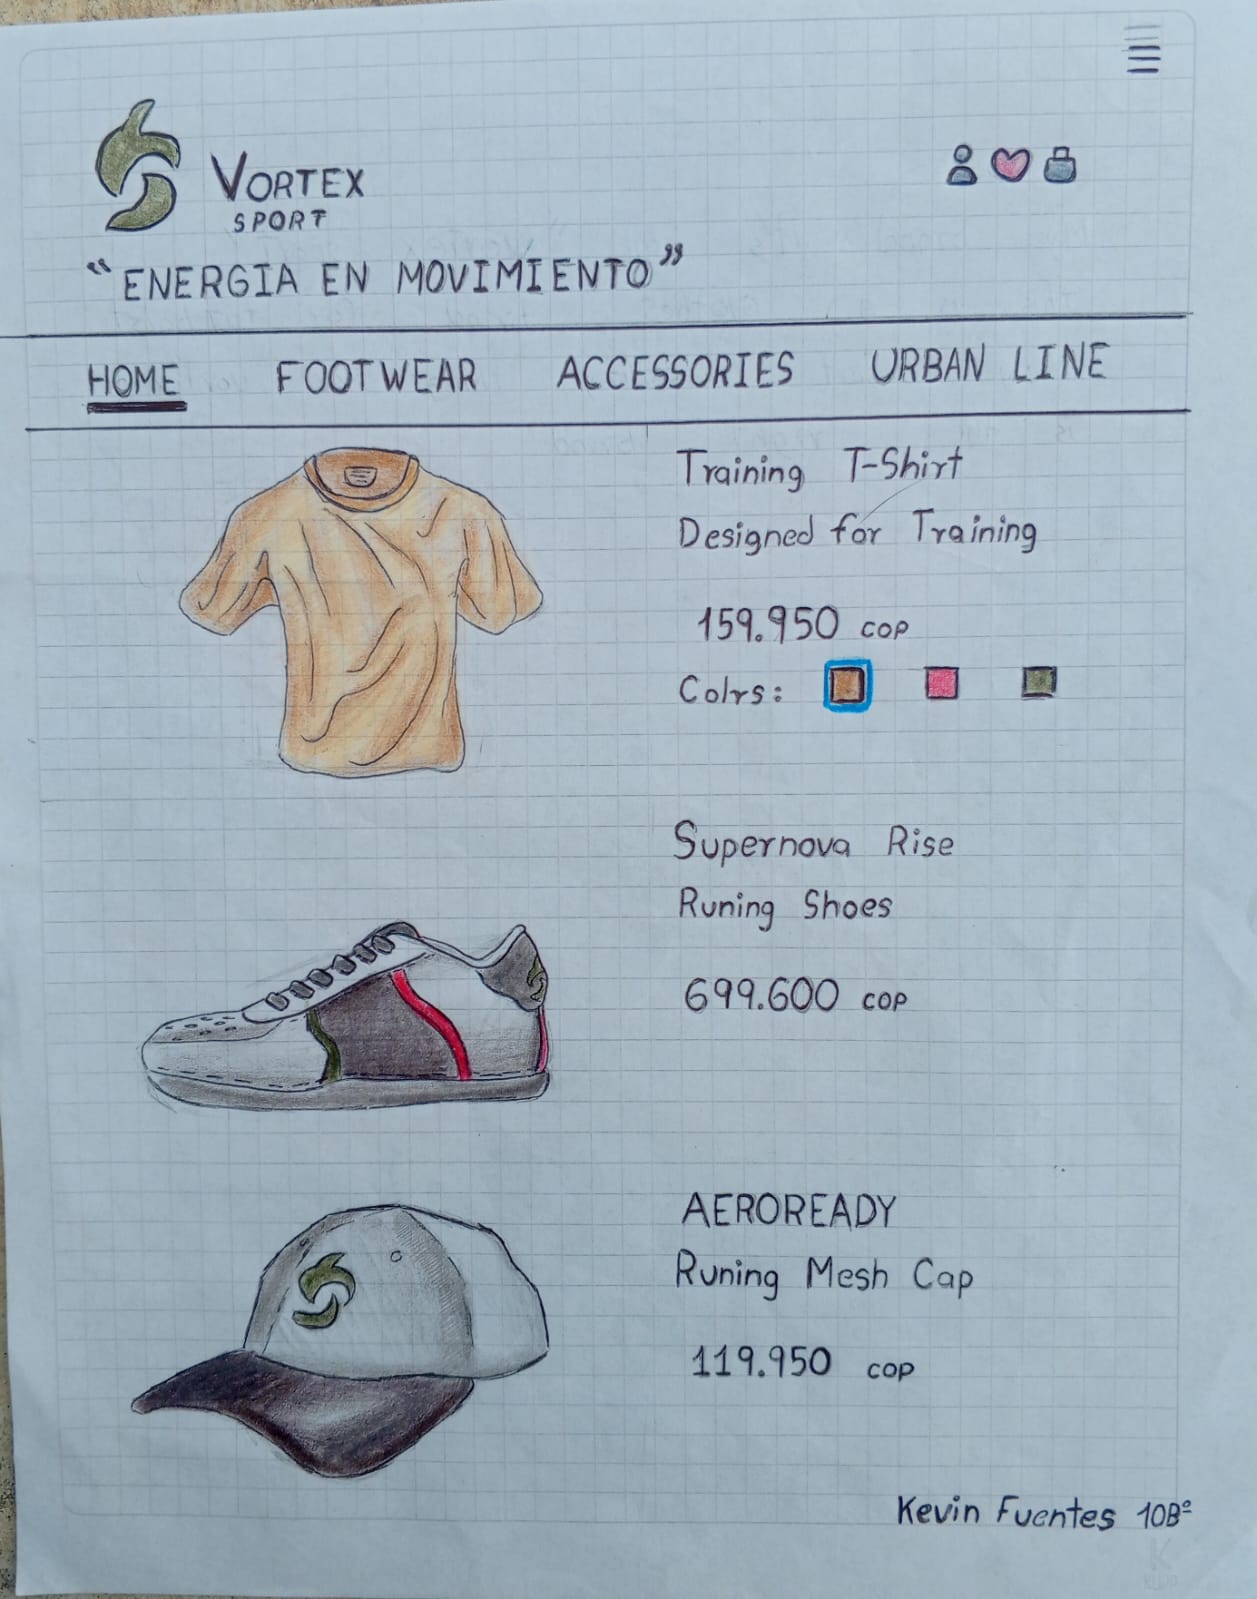 VORTEX
SPORT
“ENERGIA EN MOVIMIENTO”
HOME FOOTWEAR ACCESSORIES URBAN LINE
Training T-Shirt
Designed for Training
159.950 COP
Colrs:
Supernova Rise
Runing Shoes
699.600 COP
AEROREADY
Runing Mesh Cap
119.950 COP
Kevin Fuentes 10Bº